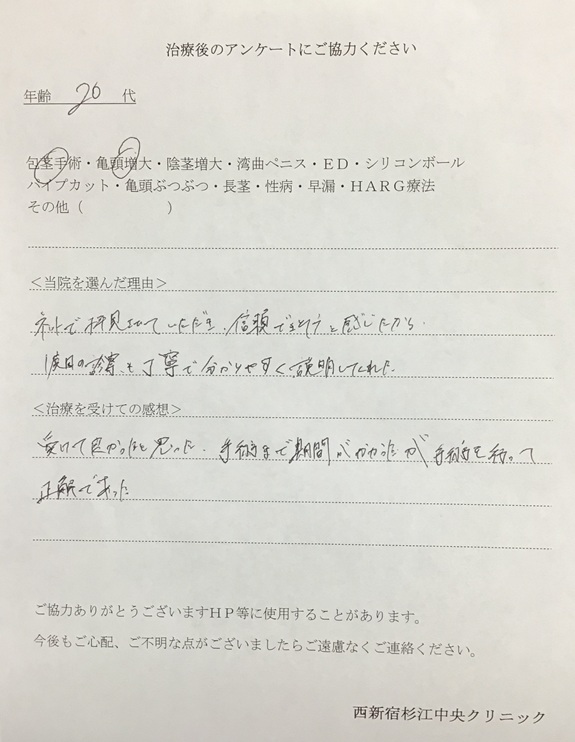 治療後のアンケートにご協力ください
年齢 20 代
包茎手術・亀頭増大・陰茎増大・湾曲ペニス・ED・シリコンボール
パイプカット・亀頭ぶつぶつ・長茎・性病・早漏・HARG療法
その他（　　　　　　）
＜当院を選んだ理由＞
ネットで拝見させていただき、信頼できそうと感じたから。
1度目の診察も丁寧で分かりやすく説明してくれた。
＜治療を受けての感想＞
受けて良かったと思った。手術まで期間がかかったが手術を行って
正解であった
ご協力ありがとうございますHP等に使用することがあります。
今後もご心配、ご不明な点がございましたらご遠慮なくご連絡ください。
西新宿杉江中央クリニック